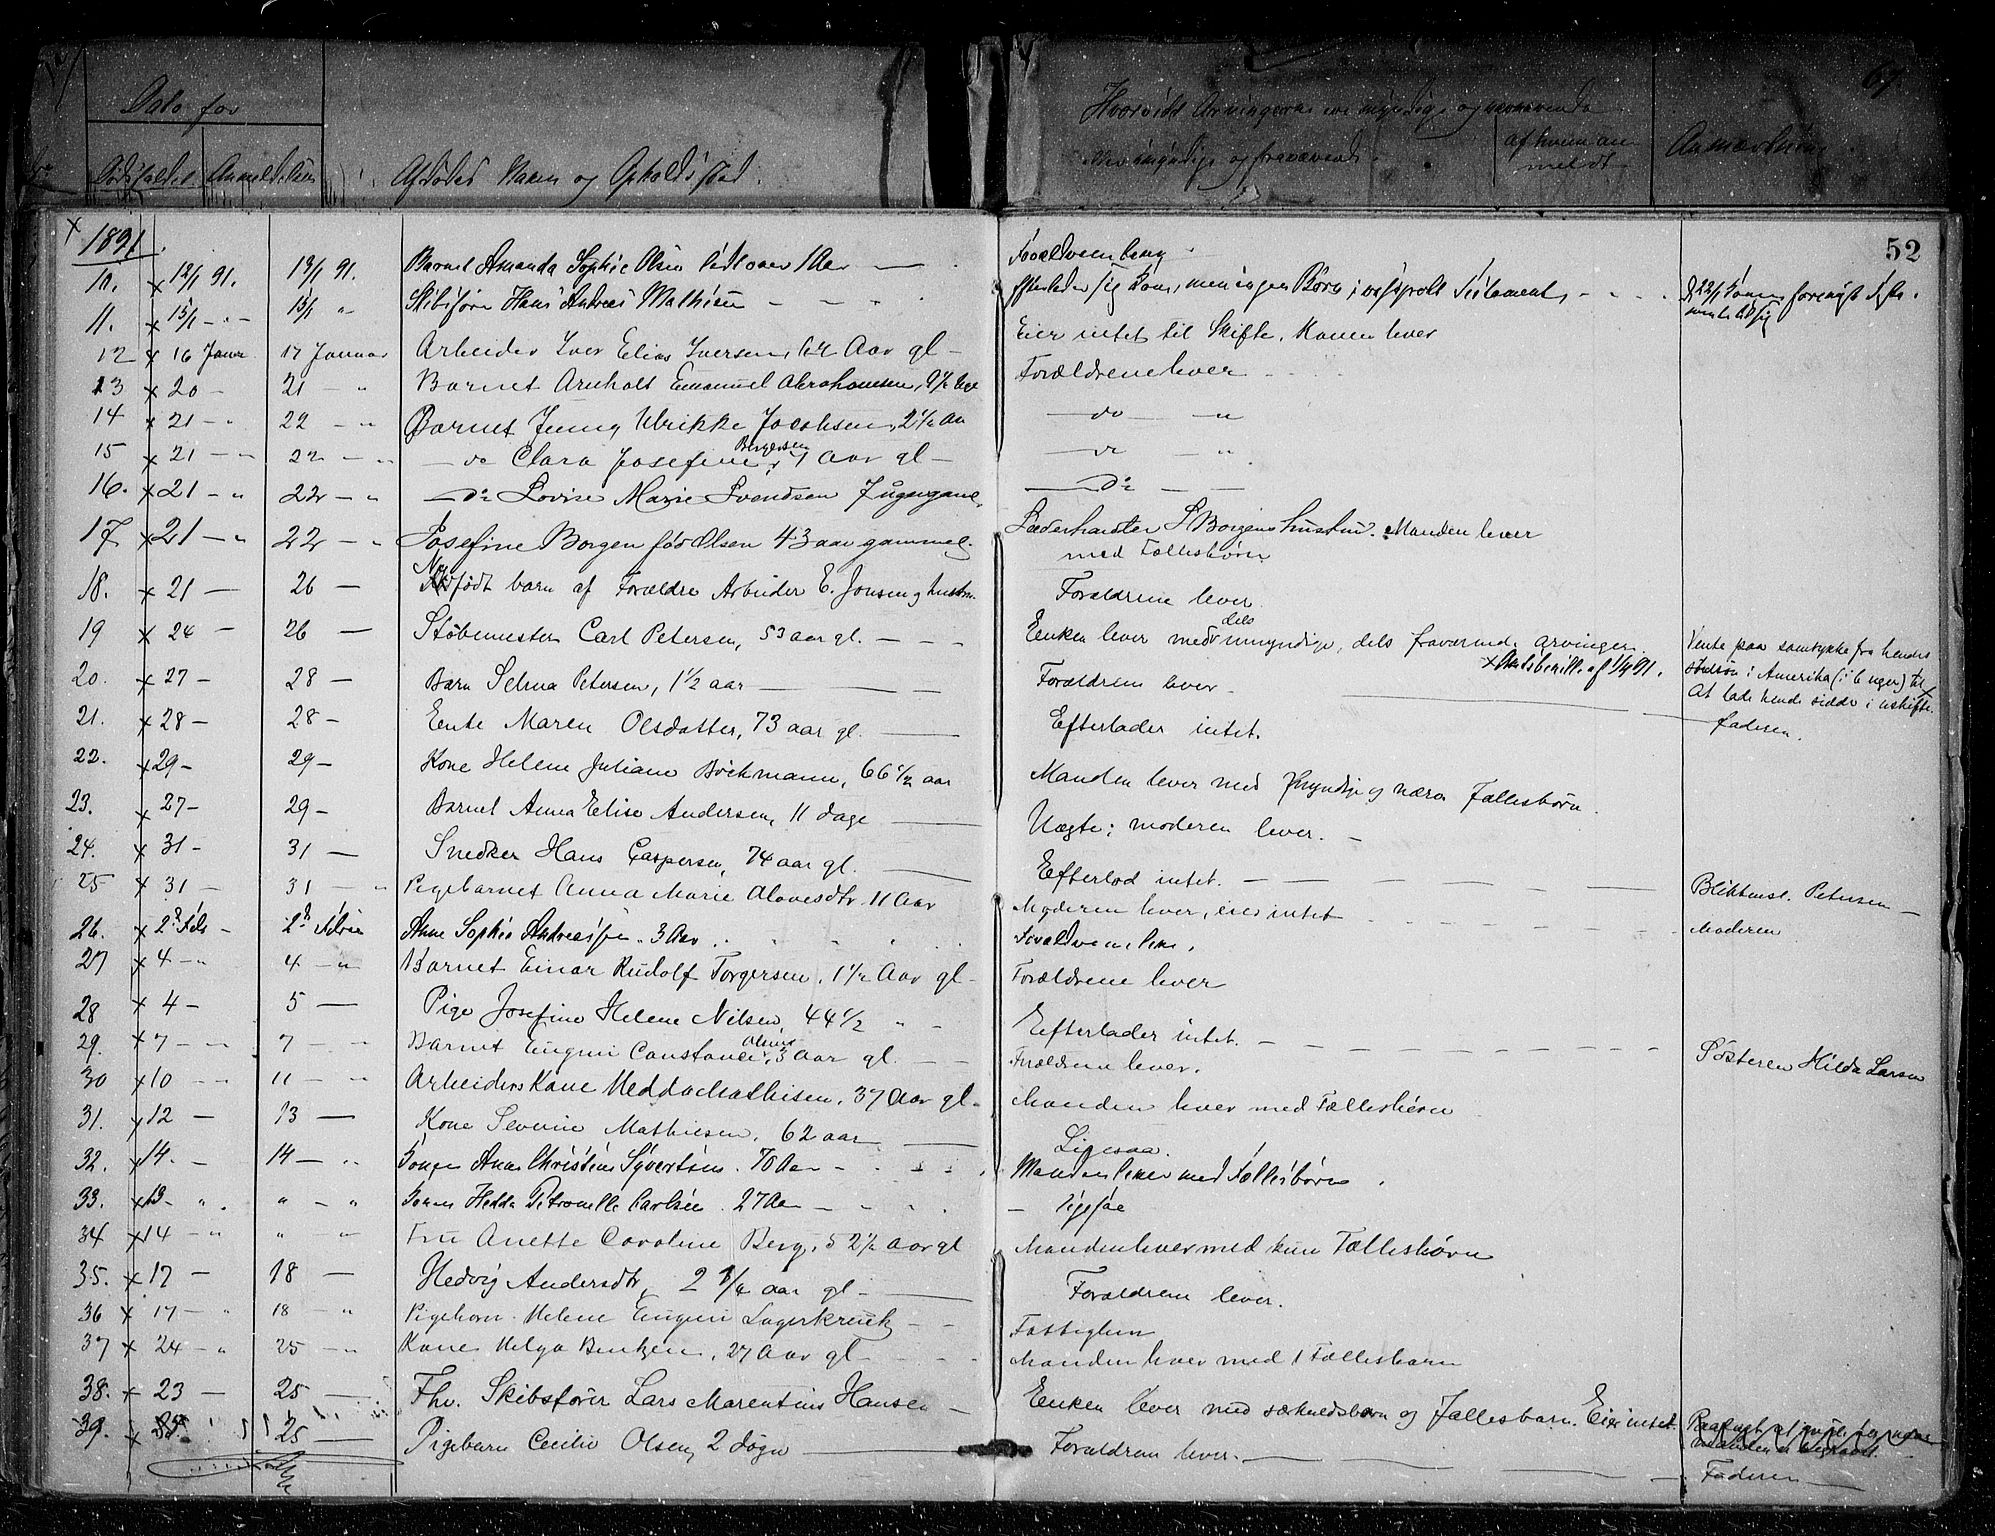 Dato for
Dødsfaldet Anmeldelsen
Afdødes Navn og Opholdssted.
Hvorvidt Arvingerne ere myndige og nærværende
eller umyndige og fraværende.
af hvem an
meldt
Anmærkning
67
52
1891
10. x 12/1 91. 13/1 91. Barnet Amanda Sophie Olsen lidt over 1 Aar — Forældrene leve
11. x 13/1 - " - 15/1 " Skibsfører Hans Andreas Mathisen - - - Efterlader sig Kone, men ingen Børn,
12 x 16 Januar 17 Januar Arbeider Iver Elias Iversen, 64 Aar gl — Eier intet til Skifte. Konen lever
13 x 20 - 21 - " Barnet Arnholt Emanuel Abrahamsen, Forældrene lever
14 x 21 - " 22 - " Barnet Jenny Ulrikke Jacobsen, 2½ Aar — do — "
15 x 21 - " 22 - " — do Clara Josefine Bergersen, 1 Aar gl — — do — "
16. x 21 - " 22 - " — do Lovise Marie Svendsen 7 uger gam. — do — —
17 x 21 - " 22 - " Josefine Borgen født Olsen 43 aar gammel. Læderhandler S Borgens hustru. Manden lever
med Fællesbørn
18. x 21 — 26 — Nyfødt barn af Forældre Arbeider E. Jonsen og hustru. Forældrene lever.
19 x 24 — 26 — Støbemester Carl Petersen, 53 aar gl. — — Enken lever med dels umyndige, dels fraværende arvinger. Vente paa samtykke fra hendes
x Amtsbevill. af 1/4 91.
sønner i Amerika (i 6 uger) til x
At lade hende sidde i uskifte.
20. x 27 - 28 - Barn Selma Petersen, 1½ aar — — Forældrene lever — Faderen.
21. x 28 - 28 - Enke Maren Olsdatter, 73 aar gl. — Efterlader intet.
22. x 29 - 29 - Kone Helene Juliane Böckmann, 66½ aar Manden lever med myndige og nærv. Fællesbørn.
23. x 27 - 29 - Barnet Anna Elise Andersen, 11 dage — Uægte; moderen lever. —
24. x 31 - 31 — Snedker Hans Caspersen, 74 aar gl. — Efterlod intet. — — Blikkensl. Petersen —
25 x 31 - 31 - " Pigebarnet Anna Marie Olavesdtr. 11 Aar Moderen lever, eier intet - - - Moderen
26. x 2d Febr - 2d Febr Anne Sophie Andreassen. 3 Aar . . . Forældrene leve.
27 x 4 - " 4 - " Barnet Einar Rudolf Torgersen, 1½ Aar gl - Forældrene lever
28 x 4 - 5 — Pige Josefine Helene Nilsen, 44½ " - Efterlader intet. — — — Søsteren Hilda Larsen
29. x 7 - " 7 - " Barnet Eugeni Constance Olsen, 3 Aar gl. — Forældrene lever.
30 x 10 - " 11 - " Arbeiders Kone Hedda Mathisen, 37 Aar gl - Manden lever med Fællesbørn
31. x 12 - 13 — Kone Severine Mathiesen, 62 aar — Ligesaa.
32. x 14. - 14 - " Konen Anne Christine Syvertsen. 70 Aar - . . Manden lever med Fællesbørn.
33. x 13 - " . " - " Konen Hedda Petronelle Carlsen. 27 Aar - . . - ligesaa
34 x 14 - " " - " Fru Anette Caroline Berg, 52½ Aar gl Manden lever med kun Fællesbørn
35. x 17 - 18 — Hedvig Andersdtr, 2 ¾ aar gl. — Forældrene lever.
36 x 17 - " 18 - " Pigebarn Helene Eugeni Lagerkreutz - - Fattiglem
37 x 24 - " 25 - " Kone Helga Bentzen, 27 Aar gl - - - Manden lever med 1 Fællesbarn
38. x 23 — 25 — Fhv. Skibsfører Lars Marentius Hansen — Enken lever med særkuldsbørn og Fællesbarn. Eier intet.
39. x 25 — Pigebarn Cecilie Olsen, 2 døgn — Forældrene lever. — — Faderen —